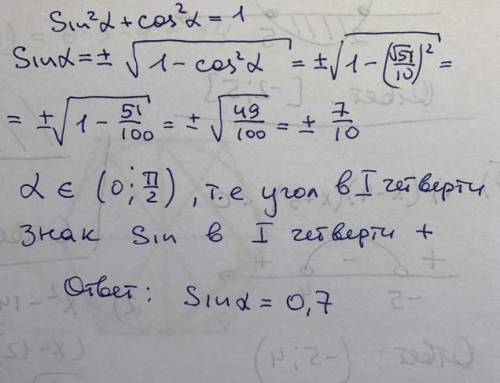 Sin²α + cos²α = 1
Sinα = ± √(1 − cos²α) = ± √(1 − (√51/10)²) =
= ± √(1 − 51/100) = ± √(49/100) = ± 7/10
α ∈ (0; π/2), т.е угол в I четверти
Знак Sin в I четверти +
Ответ: Sinα = 0,7